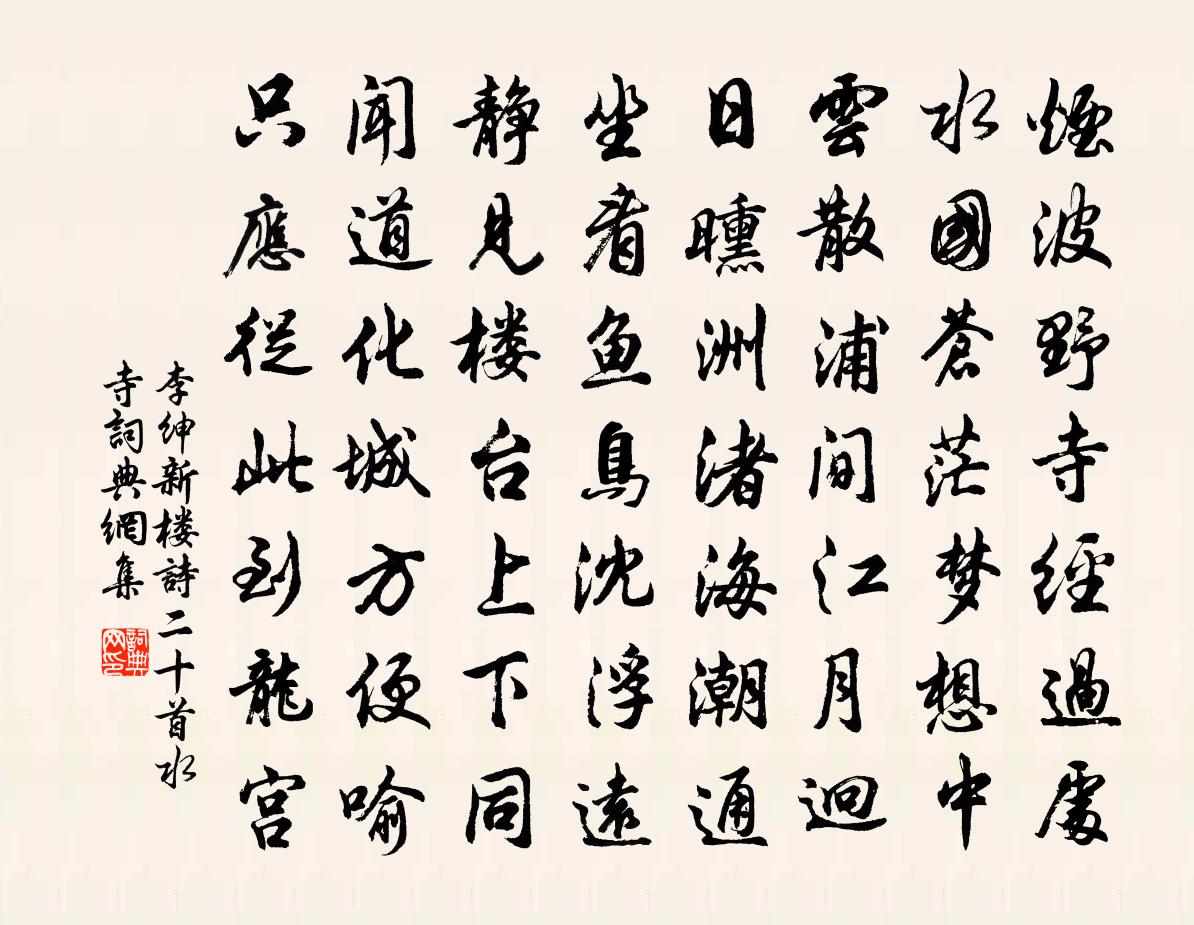 煙波野寺經過處
水國蒼茫梦想中
雲散浦間江月迥
日曛洲渚海潮通
坐看魚鳥沈浮遠
静見楼台上下同
聞道化城方便喻
只應從此到龍宫
李紳新楼詩二十首水
寺詞典網集
詞典
网印